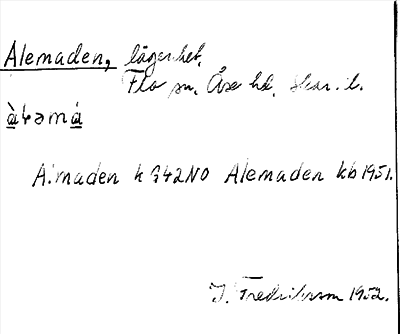 Alemaden, lägenhet,
Flo sn, Åse hd, Skar. l.
à̱ɬəmá̱
A:maden k G42NO Alemaden kb 1951.
I. Fredriksson 1952.